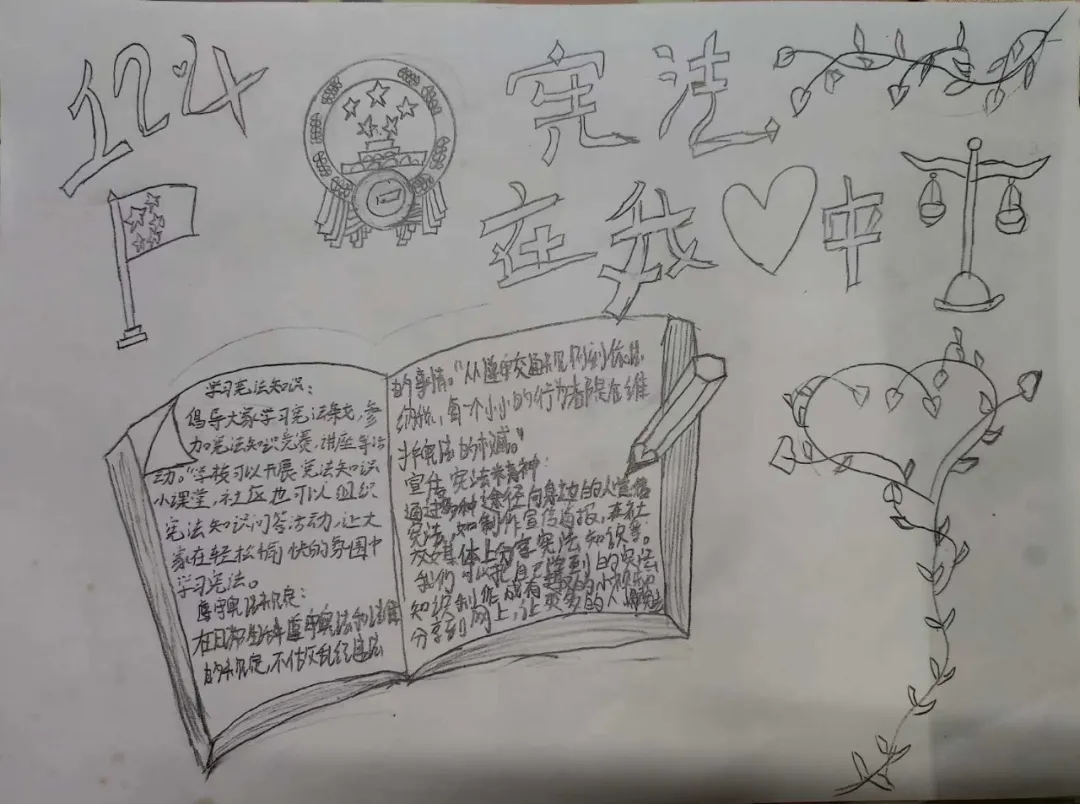 12.4
宪法
在我中
学习宪法知识：
倡导大家学习宪法条文，参
加宪法知识竞赛，讲座等活
动。"学校可以开展宪法知识
小课堂，社区也可以组织
宪法知识问答活动，让大
家在轻松愉快的氛围中
学习宪法。
遵守宪法规定：
在日常生活中遵守宪法和法律
的规定，不做违法
的事情。"从遵守交通规则到依法
纳税，每一个小小的行为都是在维
护宪法的权威。"
宣传宪法精神：
通过各种途径向身边的人宣传
宪法，如制作宣传海报，在社
交媒体上分享宪法知识等。
我们可以把自己学到的宪法
知识制作成有趣的小视频
分享到网上，让更多的人